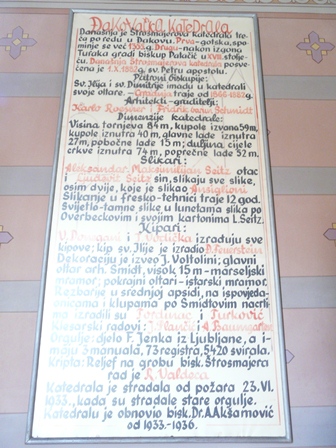 Đakovačka katedrala
Današnja je Strosmajerova katedrala treća
po redu u Đakovu. Prva-gotska, spominje
se već 1355. g. Druga-nakon izgona
Turaka gradi biskup Patačić u XVII. stoljeću.
Današnja Strosmajerova katedrala posvećena
je 1.X.1882. g. sv. Petru apostolu.
Patroni biskupije:
Sv. Ilija i sv. Dimitrije imadu u katedrali
svoje oltare. Gradnja traje od 1866-1882 g.
Arhitekti-graditelji:
Karlo Roesner i Fridrik barun Schmidt
Dimenzije katedrale:
Visina tornjeva 84 m, kupole izvana 59 m,
kupole iznutra 40 m, glavne lađe iznutra
27 m, pobočne lađe 15 m; duljina, cijele
crkve iznutra 74 m, poprečne lađe 52 m.
Slikari:
Aleksandar Maksimilijan Seitz otac
i Ljudevit Seitz sin, slikaju sve slike,
osim dvije, koje je slikao Ansiglioni
Slikanje u fresko-tehnici traje 12 god.
Svijetlo-tamne slike u lunetama slika po
Overbeckovim i svojim kartonima L. Seitz.
Kipari:
V. Donegani i T. Vodička izrađuju sve
kipove: kip sv. Ilije je izradio A. Feuerstein
Dekoraciju je izveo J. Voltolini; glavni
oltar arh. Šmidt, visok 15 m - marseljski
mramor; pokrajni oltari - istarski mramor.
Rezbarije u srednjoj apsidi, na ispovjedaonicama
i klupama po Šmidtovim nacrtima
izradili su Tordinac i Turković
Klesarski radovi: J. Plančić i A. Baumgarten
Orgulje: djelo F. Jenka iz Ljubljane, a imaju
3 manuala, 73 registra, 5420 svirala.
Kripta: Reljef na grobu bisk. Štrosmajera
rad je R. Valdeca
Katedrala je stradala od požara 23. VI.
1933., kada su stradale stare orgulje.
Katedralu je obnovio bisk. Dr. A. Akšamović
od 1933.-1936.